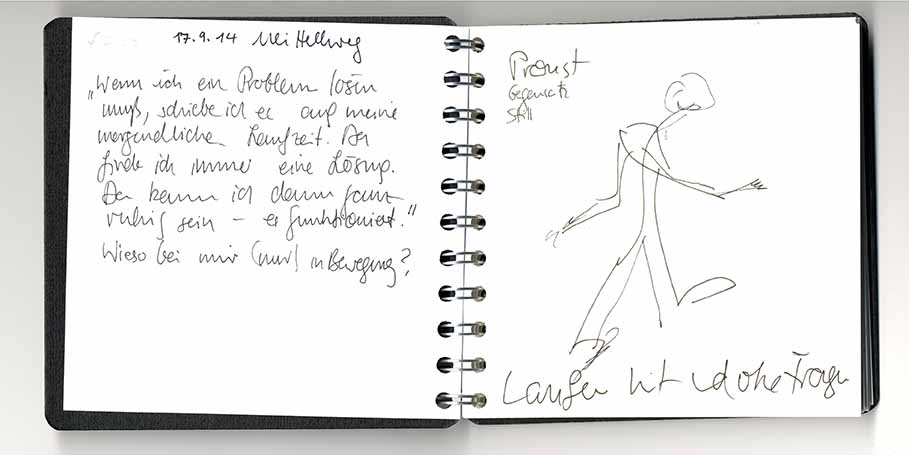 17.9.14 Uli Hellweg
„Wenn ich ein Problem lösen
muß, schiebe ich es auf meine
morgendliche Laufzeit. Da
finde ich immer eine Lösung.
Da kann ich dann ganz
ruhig sein – es funktioniert."
Wieso bei mir (nur) in Bewegung?
Proust
Gegensatz
Still
Laufen mit und ohne Fragen